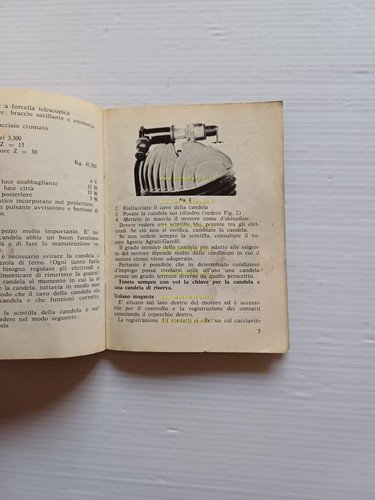 e a forcella telescopica
e: braccio oscillante e ammortiz-
acciaio cromato
ri 3,300
Z = 13
ore Z = 30
Kg. 41,500
luce anabbagliante 6 V
luce città 15 W
posteriore 15 W
stico incorporato nel proiettore.
pulsante avvisatore e bottone di
o.
pezzo molto importante. E' ne-
candela abbia un buon funzio-
e di fare la manutenzione re-
è necessario svitare la candela e
zzola di ferro. (Ogni tanto farla
bisogna regolare gli elettrodi a
dimenticare di rimettere la
candela al momento in cui la si
la candela, tuttavia in modo non
do che il cavo della candela sia
candela e che funzioni corretta-
la scintilla della candela è suf-
edere nel modo seguente :
ela
Fig. 2
2. Riallacciate il cavo della candela
3. Posate la candela sul cilindro (vedere Fig. 2)
4. Mettete in marcia il motore come d'abitudine.
Dovete vedere una scintilla blu, potente tra gli elet-
trodi. Se ciò non si verifica, cambiate la candela.
Se non vedete scintilla, consultate il vo-
stro Agente Agrati-Garelli.
Il grado termico della candela più adatto alle esigen-
ze del motore dipende molto dalle condizioni in cui il
motore stesso viene adoperato.
Pertanto è possibile che in determinate condizioni
d'impiego possa rivelarsi utile all'uso una candela
avente un grado termico diverso da quello prescritto.
Tenete sempre con voi la chiave per la candela e
una candela di riserva.
Volano magnete
E' situato sul lato destro del motore ed è accessi-
bile per il controllo e la registrazione dei contatti
smontando il coperchio destro.
La registrazione dei contatti si effettua col cacciavite
7